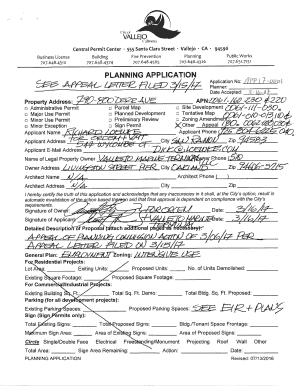 City of
VALLEJO
California
Central Permit Center • 555 Santa Clara Street • Vallejo • CA • 94590
Business License Building Fire Prevention Planning Public Works
707.648.4310 707.648.4374 707.648.4565 707.648.4326 707.651.7151
PLANNING APPLICATION
SEE APPEAL LETTER FILED 3/15/17
Application No:
Planner:
Date Accepted
Property Address: 790-800 DERR AVE APN: 0061-160-230 & 220
Administrative Permit Parcel Map Site Development
Major Use Permit Planned Development Tentative Map
Minor Use Permit Preliminary Review Zoning Amendment
Minor Exception Sign Permit Other Appeal
Applicant Name RICHARD LOEWKE Applicant Phone
Applicant Address City SAN RAMON Zip 94583
Applicant E-Mail Address
Name of Legal Property Owner VALLEJO MARINE TERMINAL Phone
Owner Address City Zip
Architect Name N/A Architect Phone
Architect Address N/A City Zip
I hereby certify the truth of this application and acknowledge that any inaccuracies in it shall, at the City's option, result in
automatic invalidation of the action based thereon and that approval is dependent on compliance with the City's
requirements.
Signature of Owner Date 3/16/17
Signature of Applicant Date 3/16/17
Detailed Description of Proposal (attach additional pages if necessary):
APPEAL OF PLANNING COMMISSION ACTION OF 3/06/17 PER
APPEAL LETTER FILED ON 3/15/17
General Plan: EMPLOYMENT Zoning: INTENSIVE USE
For Residential Projects:
Lot Area: Existing Units: Proposed Units: No. of Units Demolished:
Existing Square Footage: Proposed Square Footage:
For Commercial/Industrial Projects:
Existing Building Sq. Ft. Total Sq. Ft. Demo: Total Bldg. Sq. Ft. Proposed:
Parking (for all development projects):
Existing Parking Spaces: Proposed Parking Spaces: SEE EIR + PLANS
Sign (Sign Permits only):
Total Existing Signs: Total Proposed Signs: Bldg/Tenant Space Frontage:
Maximum Sign Area: Area of Existing Signs: Area of Proposed Signs:
Circle Single/Double Face Electrical Freestanding/Monument Projecting Roof Wall Other
Total Area: Sign Area Remaining: Action: Date:
PLANNING APPLICATION Revised 07/13/2016